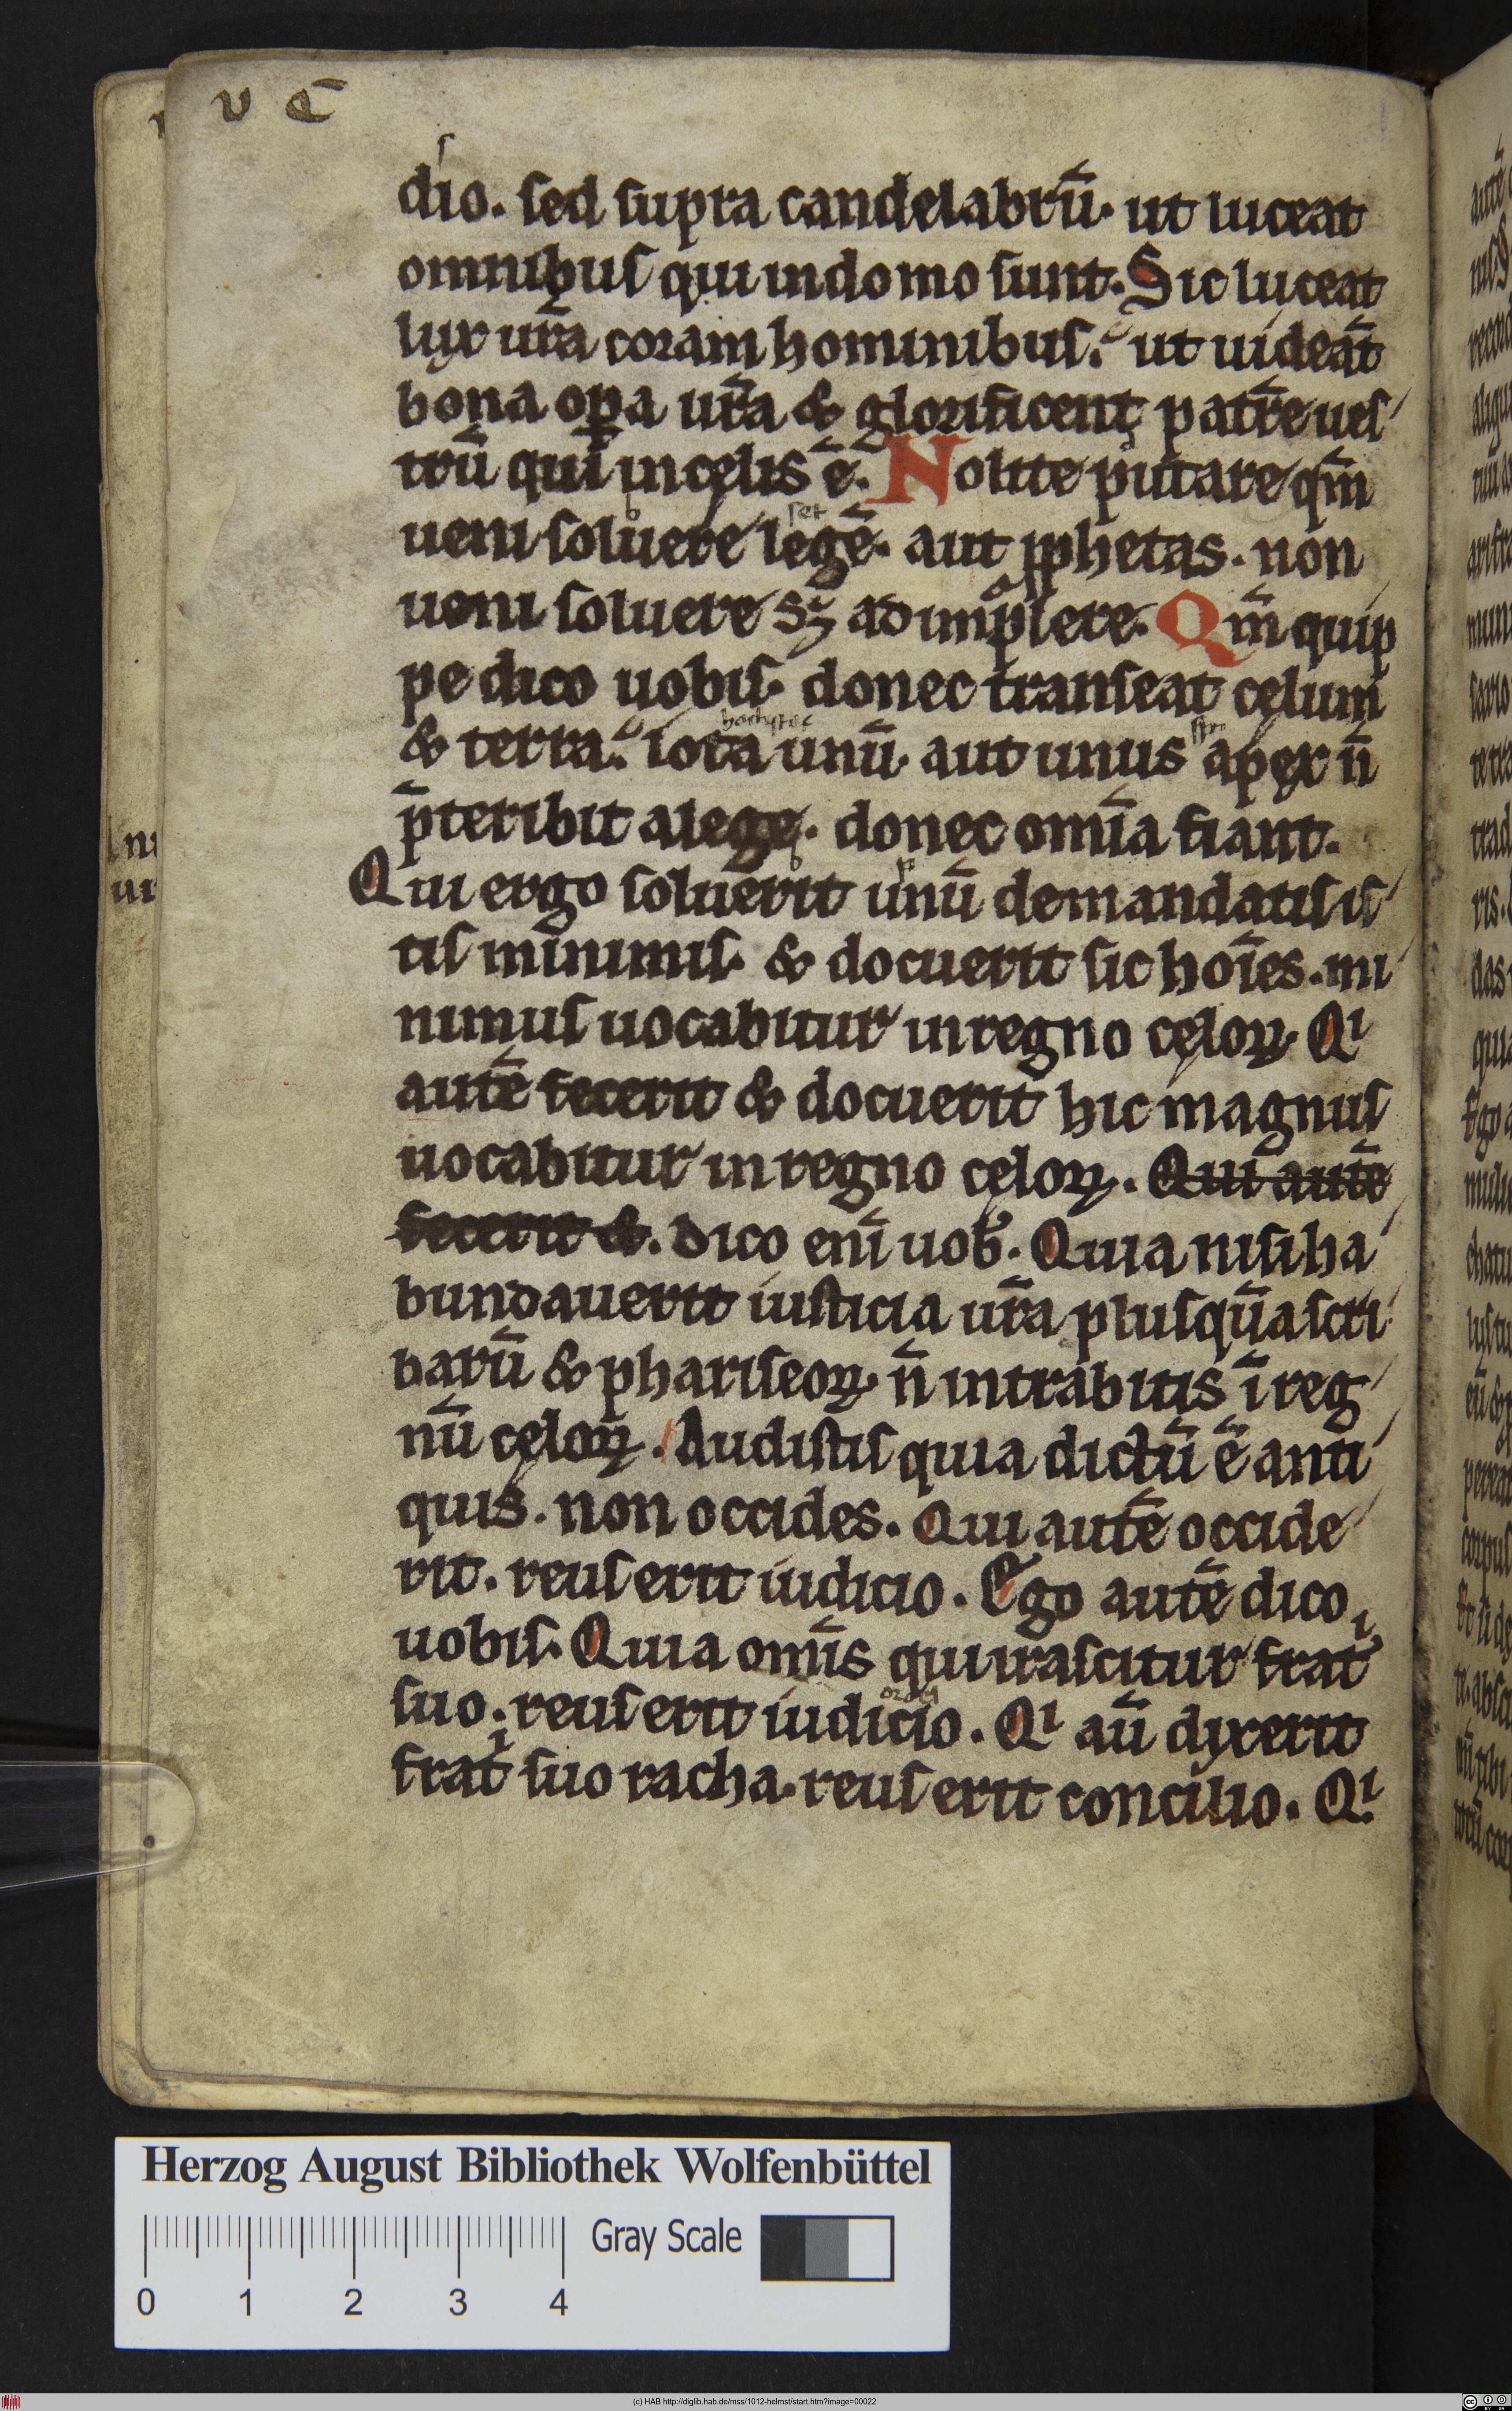 v e
dio. sed supra candelabrū. ut luceat
omnibus qui in domo sunt. Sic luceat
lux ur̄a coram hominibus. ut uideāt
bona op̄a ur̄a & glorificent patrē ues
trū qui in cęlis ē. Nolite putare qm̄
ueni soluere legē. aut ꝓphetas. non
ueni soluere sꝫ adimplere. Qm̄ quip
pe dico uobis. donec transeat cęlum
& terra. iota unū. aut unus apex n̄
p̄teribit a lege. donec om̄ia fiant.
Qui ergo soluerit unū de mandatis is
tis minimis. & docuerit sic hoīes. mi
nimus uocabitur in regno cęloꝝ. Qi
autē fecerit & docuerit hic magnus
uocabitur in regno cęloꝝ. Qui autē
fecerit &. dico enī uob. Quia nisi ha
bundauerit iusticia ur̄a plus quā scri
barū & phariseoꝝ. n̄ intrabitis ī reg
nū cęloꝝ. Audistis quia dictū ē anti
quis. non occides. Qui autē occide
rit. reus erit iudicio. Ego autē dico
uobis. Quia om̄is qui irascitur frat^i
suo. reus erit iudicio. Qi aū dixerit
frat^i suo racha. reus erit concilio. Qi
Herzog August Bibliothek Wolfenbüttel
Gray Scale
0 1 2 3 4
(c) HAB http://diglib.hab.de/mss/1012-helmst/start.htm?image=00022